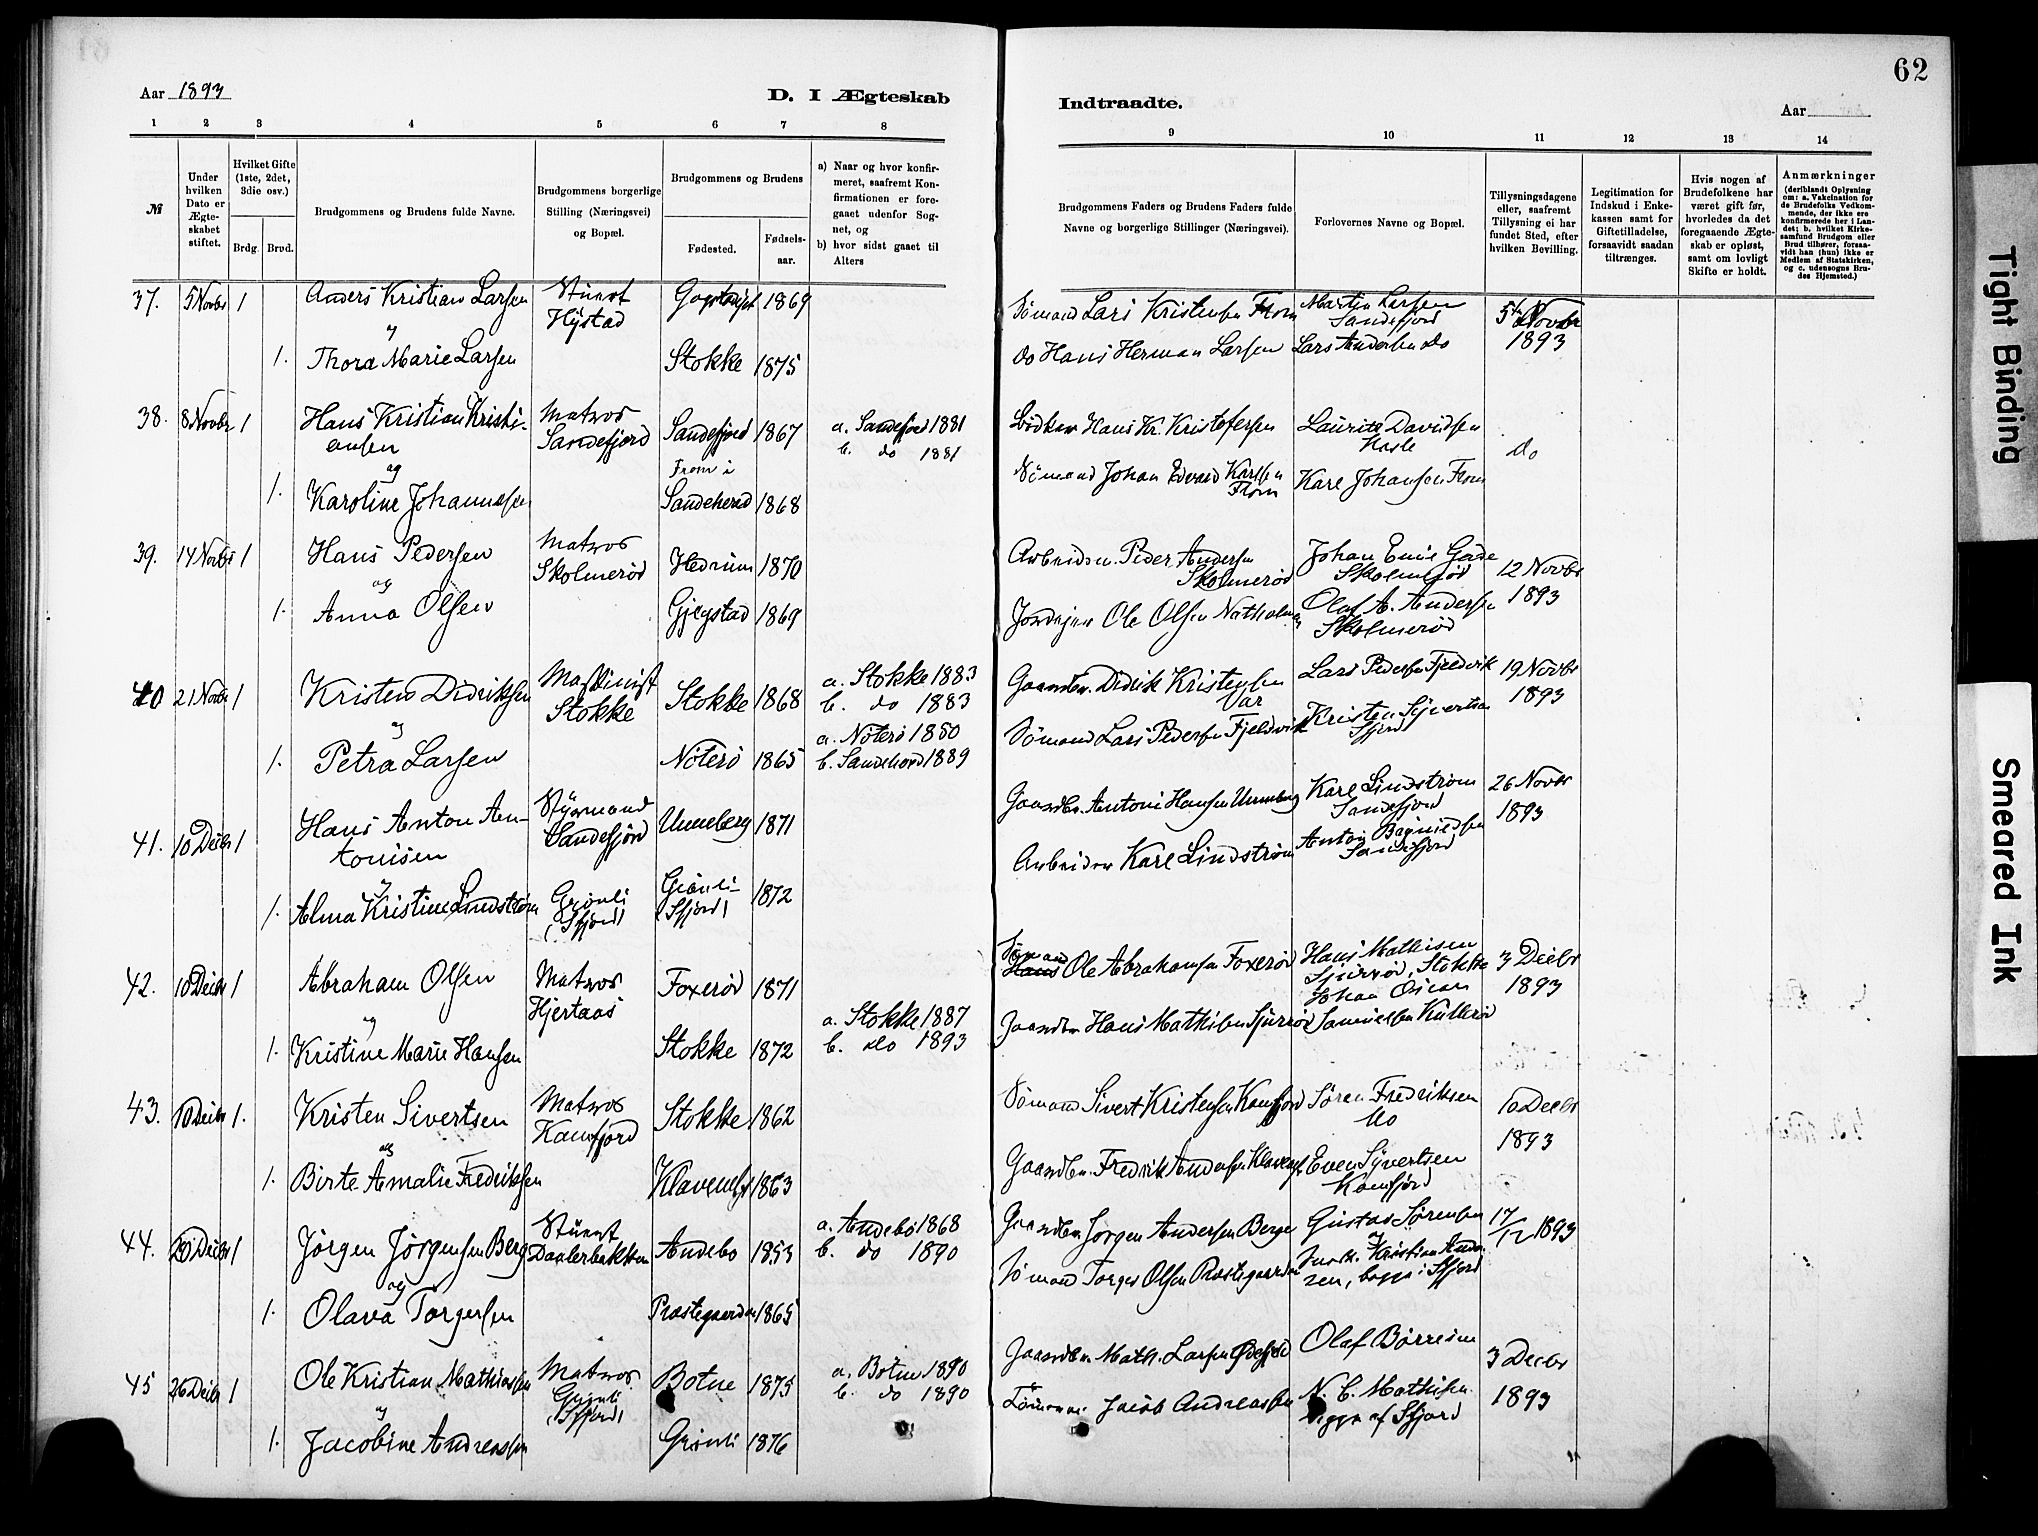 62
Aar 1893
D. I Ægteskab
Indtraadte.
Aar
1 2 3 4 5 6 7 8
9 10 11 12 13 14
№
Under hvilken Dato er Ægteskabet stiftet.
Hvilket Gifte (1ste, 2det, 3die osv.)
Brdg. Brud.
Brudgommens og Brudens fulde Navne.
Brudgommens borgerlige Stilling (Næringsvei) og Bopæl.
Brudgommens og Brudens
Fødested. Fødselsaar.
a) Naar og hvor konfirmeret, saafremt Konfirmationen er foregaaet udenfor Sognet, og
b) hvor sidst gaaet til Alters
Brudgommens Faders og Brudens Faders fulde Navne og borgerlige Stillinger (Næringsvei).
Forlovernes Navne og Bopæl.
Tillysningsdagene eller, saafremt Tillysning ei har fundet Sted, efter hvilken Bevilling.
Legitimation for Indskud i Enkekassen samt for Giftetilladelse, forsaavidt saadan tiltrænges.
Hvis nogen af Brudefolkene har været gift før, hvorledes da det foregaaende Ægteskab er opløst, samt om lovligt Skifte er holdt.
Anmærkninger
(deriblandt Oplysning om: a. Vakcination for de Brudefolks Vedkommende, der ikke ere konfirmerede her i Landet; b. hvilket Kirkesamfund Brudgom eller Brud tilhører, forsaavidt han (hun) ikke er Medlem af Statskirken, og c. udensogns Brudes Hjemsted.)
37. 5 Novbr 1 Anders Kristian Larsen Stuert Hystad 1869 Sømand Lars Kristensen From Martin Larsen Sandefjord 5te Novbr 1893
og
1. Thora Marie Larsen Stokke 1875 do Hans Herman Larsen Lars Andersen do
38. 8 Novbr 1 Hans Kristian Kristiansen Matros Sandefjord Sandefjord 1867 a. Sandefjord 1881 b. do 1881 Hans Kr. Kristofersen Lauritz Davidsen do
og
1. Karoline Johannesen From i Sandeherred 1868 Sømand Johan Edvard Karlsen From Karl Johansen From
39. 14 Novbr 1 Hans Pedersen Matros Skolmerød Hedrum 1870 Arbeider Peder Andersen Skolmerød Johan Emil Gade Skolmerød 12 Novbr 1893
og
1. Anna Olsen Gjegstad 1869 Jordejer Ole Olsen Olaf A. Andersen Skolmerød
40 21 Novbr 1 Kristen Didriksen Maskinist Stokke Stokke 1868 a. Stokke 1883 b. do 1883 Gaardbr. Didrik Kristensen Var Lars Pedersen Fjeldvik 19 Novbr 1893
og
1. Petra Larsen Nøterø 1865 a. Nøterø 1880 b. Sandeherd 1889 Sømand Lars Pedersen Fjeldvik Kristen Syvertsen Sfjord
41. 10 Decbr 1 Hans Anton Antonisen Styrmand Sandefjord Unneberg 1871 Gaardbr. Antoni Hansen Unneberg Karl Lindstrøm Sandefjord 26 Novbr 1893
og
1. Alma Kristine Lindstrøm Grønli (Sfjord) Grønli (Sfjord) 1872 Arbeider Karl Lindstrøm Anton Sandefjord
42. 10 Decbr 1 Abraham Olsen Matros Hjertaas Foxerød 1871 Sømand Ole Abrahamsen Foxerød Hans Mathisen Sjuerød, Stokke 3 Decbr 1893
og
1. Kristine Marie Hansen Stokke 1872 a. Stokke 1887 b. do 1893 Gaardbr Hans Mathisen Sjuerød Johan Oscar Samuelsen
43. 10 Decbr 1. Kristen Sivertsen Matros Kamfjord Stokke 1862 Sømand Sivert Kristensen Kamfjord Søren Fredriksen Mo 10 Decbr 1893
og
1. Birte Amalie Fredriksen Klavenes 1863 Gaardbr. Fredrik Andersen Klavenes Even Syvertsen Kamfjord
44. 20 Decbr 1 Jørgen Jørgensen Berg Stuert Daalerbakken Andebo 1853 a. Andebo 1868 b. do 1890 Gaardbr Jørgen Andersen Berge Gustav Sørensen 17/12 1893
og
1. Olava Torgersen Præstegaarden 1865 Sømand Torger Olsen Præstegaarden Kristian begge i Sfjord
45 26 Decbr 1 Ole Kristian Mathiassen Matros Grønli (Sfjord) Botne 1875 a. Botne 1890 b. do 1890 Gaardbr. Math. Larsen Olaf Børresen 3 Decbr 1893
og
1. Jacobine Andreassen Grønli 1876 Jacob Andreassen N. C. Mathisen begge af Sfjord
Tight Binding
Smeared Ink